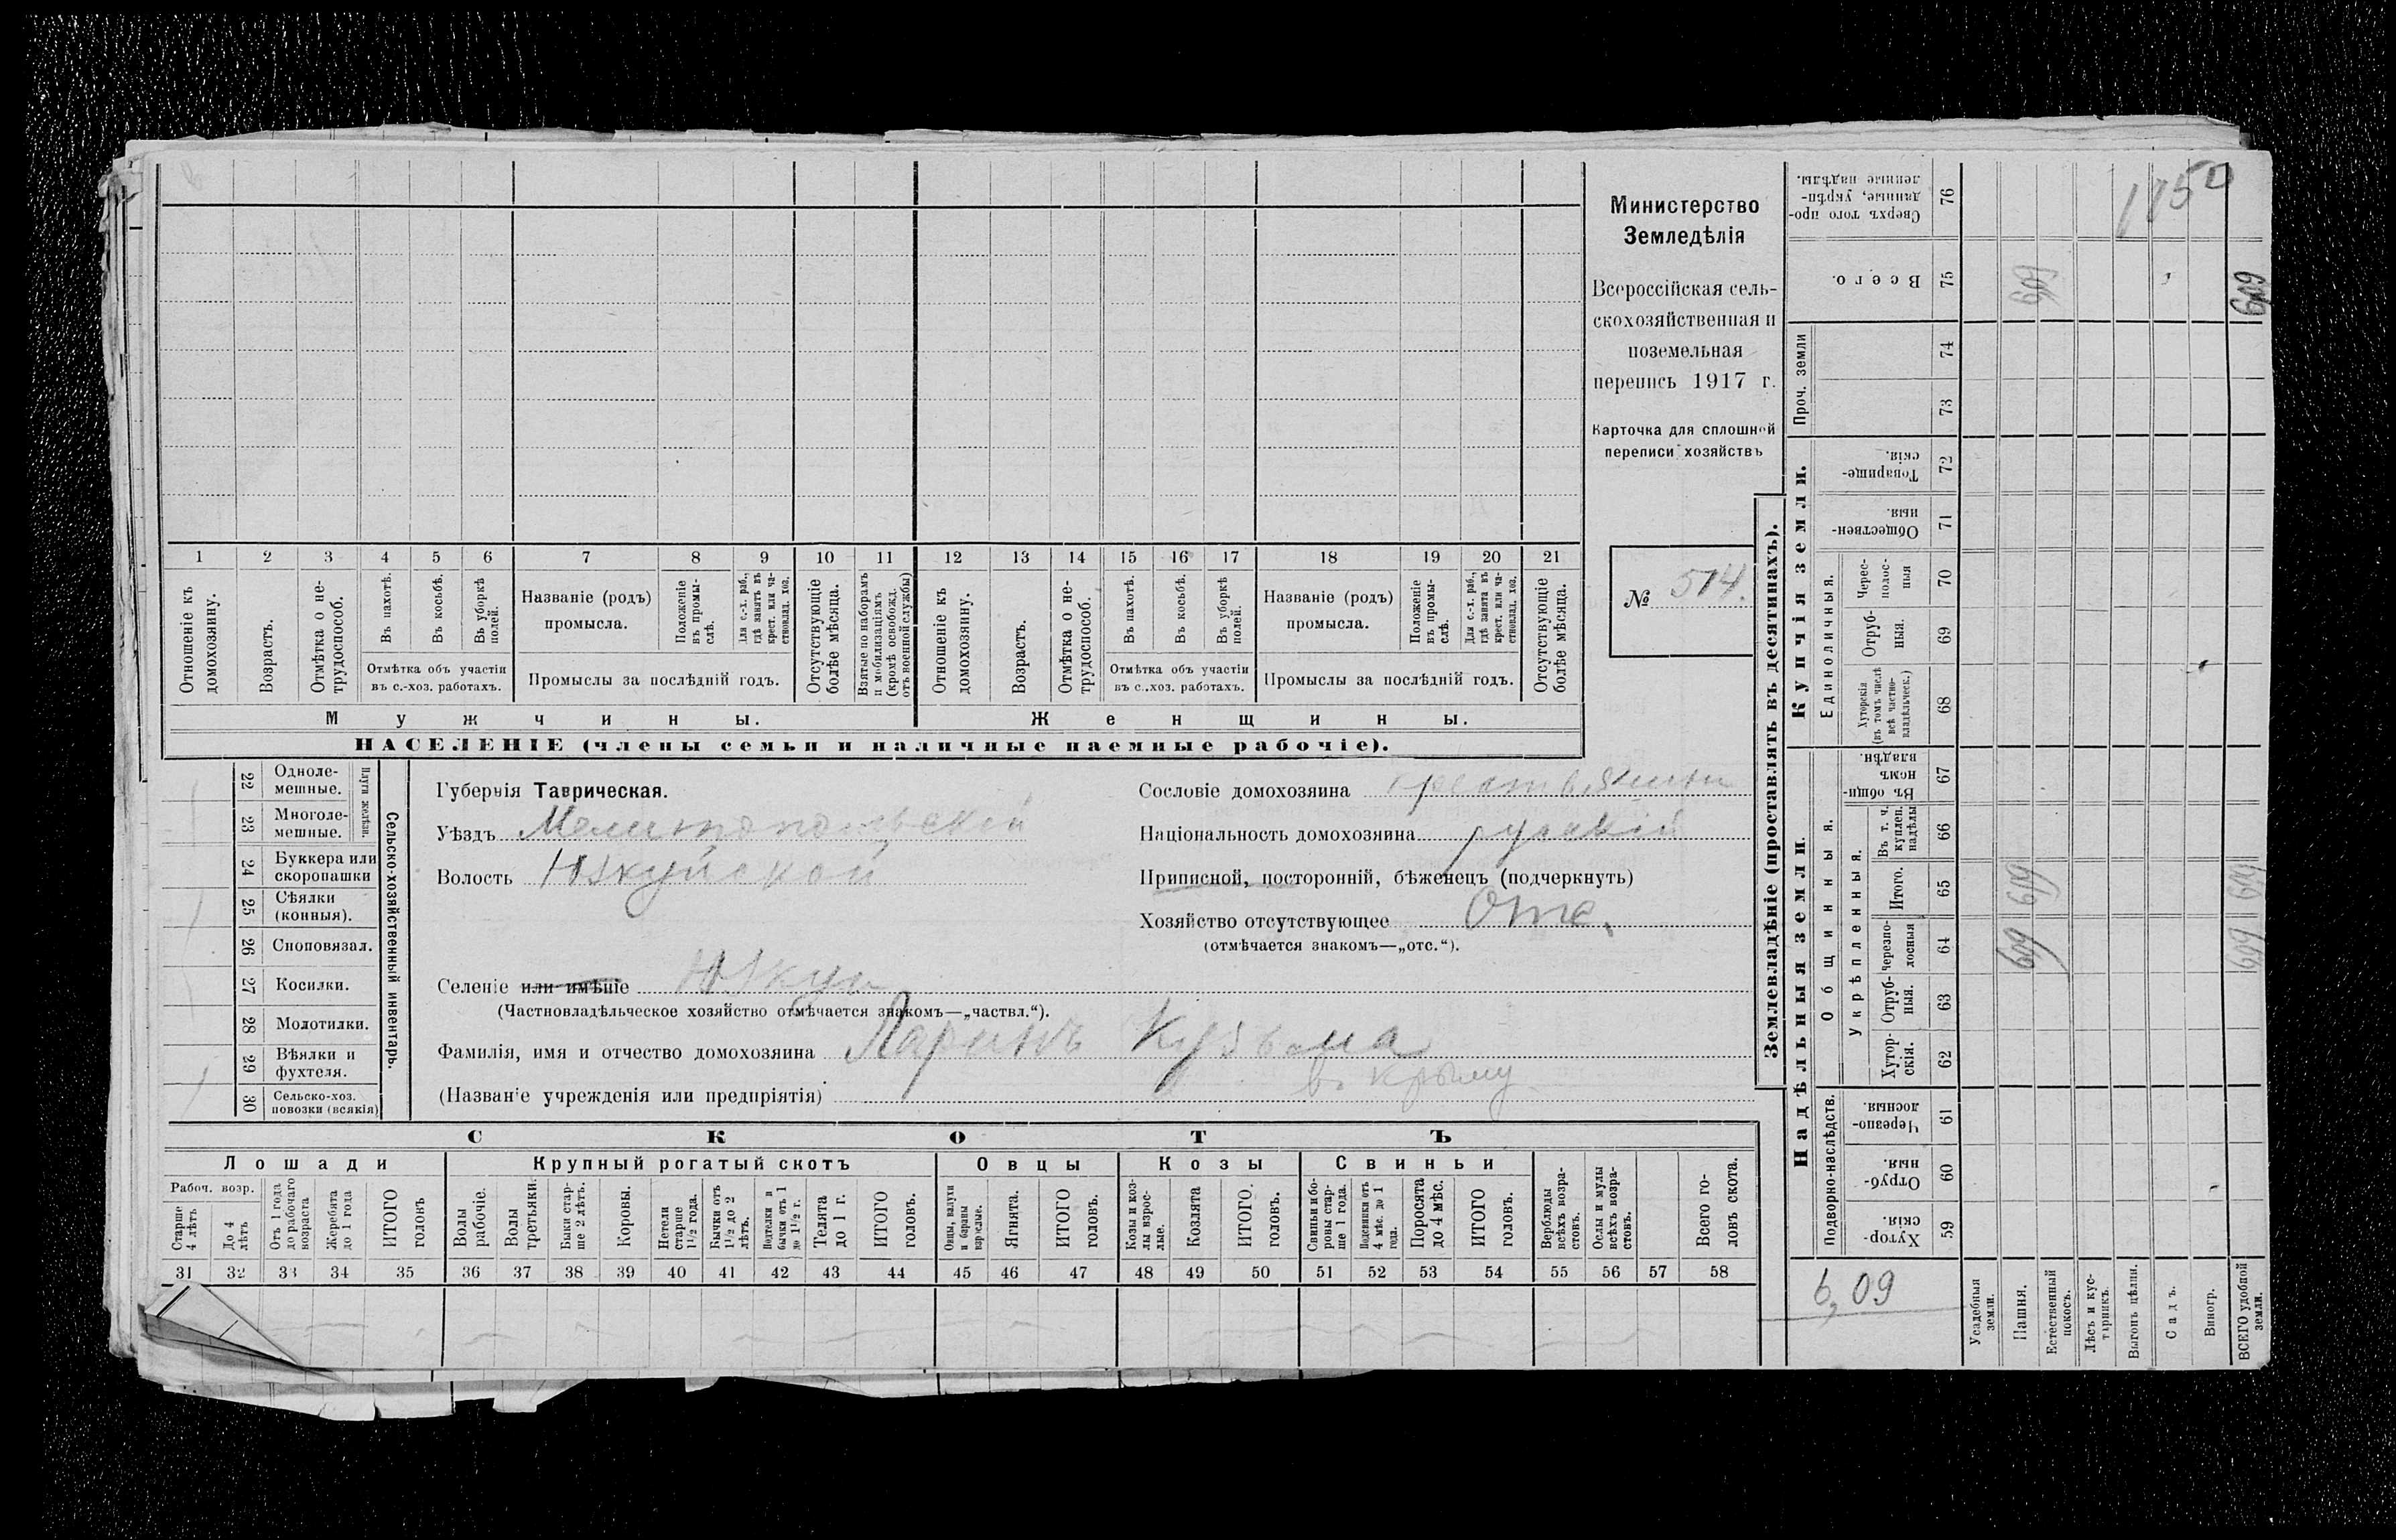 Министерство
Земледѣлія
Всероссійская сель-
скохозяйственная и
поземельная
перепись 1917 г.
Карточка для сплошной
переписи хозяйствъ
№ 514.
1 2 3 4 5 6 7 8 9 10 11 12 13 14 15 16 17 18 19 20 21
Отношеніе къ домохозяину.
Возрастъ.
Отмѣтка о не-трудоспособ.
Въ пахотѣ.
Въ косьбѣ.
Въ уборкѣ полей.
Отмѣтка объ участіи
въ с.-хоз. работахъ.
Названіе (родъ)
промысла.
Положеніе въ промы-слѣ.
Для с.-х. раб., гдѣ занятъ въ крест. или ча-стновлад. хоз.
Промыслы за послѣдній годъ.
Отсутствующіе болѣе мѣсяца.
Взятые по наборамъ и мобилизаціямъ (кромѣ освобожд. отъ военной службы)
Отношеніе къ домохозяину.
Возрастъ.
Отмѣтка о не-трудоспособ.
Въ пахотѣ.
Въ косьбѣ.
Въ уборкѣ полей.
Отмѣтка объ участіи
въ с.-хоз. работахъ.
Названіе (родъ)
промысла.
Положеніе въ промы-слѣ.
Для с.-х. раб., гдѣ занята въ крест. или ча-стновлад. хоз.
Промыслы за послѣдній годъ.
Отсутствующіе болѣе мѣсяца.
Мужчины.
Женщины.
НАСЕЛЕНІЕ (члены семьи и наличные наемные рабочіе).
22 Одноле-мешные.
23 Многоле-мешные.
Плуги желѣзн.
24 Буккера или скоропашки
25 Сѣялки (конныя).
26 Сноповязал.
27 Косилки.
28 Молотилки.
29 Вѣялки и фухтеля.
30 Сельско-хоз. повозки (всякія)
Сельско-хозяйственный инвентарь.
Губернія Таврическая.
Уѣздъ Мелитопольскій
Волость Юзкуйской
Селеніе или имѣніе Юзкуи
(Частновладѣльческое хозяйство отмѣчается знакомъ—„частвл.“).
Фамилія, имя и отчество домохозяина Ларинъ Кузьма
въ Крыму
(Названіе учрежденія или предпріятія)
Сословіе домохозяина крестьянинъ
Національность домохозяина русскій
Приписной, посторонній, бѣженецъ (подчеркнуть)
Хозяйство отсутствующее Отс.
(отмѣчается знакомъ—„отс.“).
СКОТЪ
Лошади
Крупный рогатый скотъ
Овцы
Козы
Свиньи
Рабоч. возр.
Старше 4 лѣтъ
До 4 лѣтъ
Отъ 1 года до рабочаго возраста
Жеребята до 1 года
ИТОГО головъ
Волы рабочіе.
Волы третьяки.
Быки стар-ше 2 лѣтъ.
Коровы.
Нетели старше 1½ года.
Бычки отъ 1½ до 2 лѣтъ.
Подтелки и бычки отъ 1 до 1½ г.
Телята до 1 г.
ИТОГО головъ.
Овцы, валухи и бараны взрослые.
Ягнята.
ИТОГО головъ.
Козы и коз-лы взрос-лые.
Козлята
ИТОГО головъ.
Свиньи и бо-ровы стар-ше 1 года.
Подсвинки отъ 4 мѣс. до 1 года.
Поросята до 4 мѣс.
ИТОГО головъ.
Верблюды всѣхъ возра-стовъ.
Ослы и мулы всѣхъ возра-стовъ.
Всего го-ловъ скота.
31 32 33 34 35 36 37 38 39 40 41 42 43 44 45 46 47 48 49 50 51 52 53 54 55 56 57 58
Землевладѣніе (проставлять въ десятинахъ).
Купчія земли.
Надѣльныя земли.
Сверхъ того про-данные, укрѣп-ленные надѣлы. 76
1750
Всего. 75 609 609
Проч. земли 74 73
Товарище-скія. 72
Обществен-ныя. 71
Единоличныя.
Черес-полос-ныя 70
Отруб-ныя. 69
Хуторскія (въ томъ числѣ всѣ частно-владѣльческ.) 68
Общинныя.
Въ общи-номъ владѣн. 67
Укрѣпленныя.
Въ т. ч. куплен. надѣлы 66
Итого. 65 609 609
Черезпо-лосныя 64 609 609
Отруб-ныя. 63
Хутор-скія. 62
Подворно-наслѣдств.
Черезпо-лосныя. 61
Отруб-ныя. 60
Хутор-скія. 59
6,09
Усадебныя земли.
Пашня.
Естественный покосъ.
Лѣсъ и кус-тарникъ.
Выгонъ цѣлин.
Садъ.
Виногр.
ВСЕГО удобной земли.